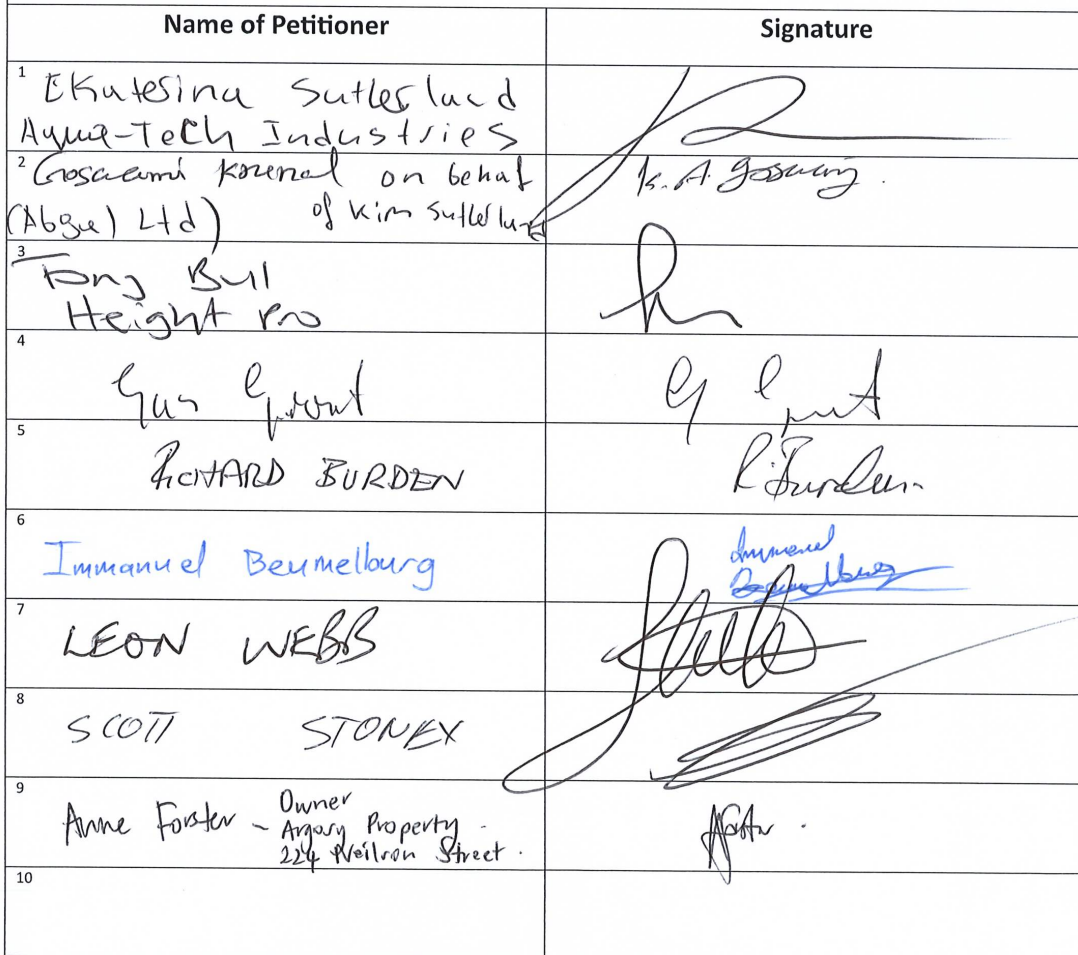 Name of Petitioner Signature
1 Ekatesina Sutlerlucd
Aqua-Tech Industries
2 Goscoami on behaf K. A. Goswami.
(Abgue) Ltd) of Kim Sutlerlund
3 Tony Bull
Height Pro
4
Gus Grout G Grut
5
RICHARD BURDEN R. Burden.
6
Immanuel Beumelburg Immanuel
7
LEON WEBB
8
SCOTT STONEX
9
Anne Forster - Owner
Argosy Property.
224 Neilson Street.
10